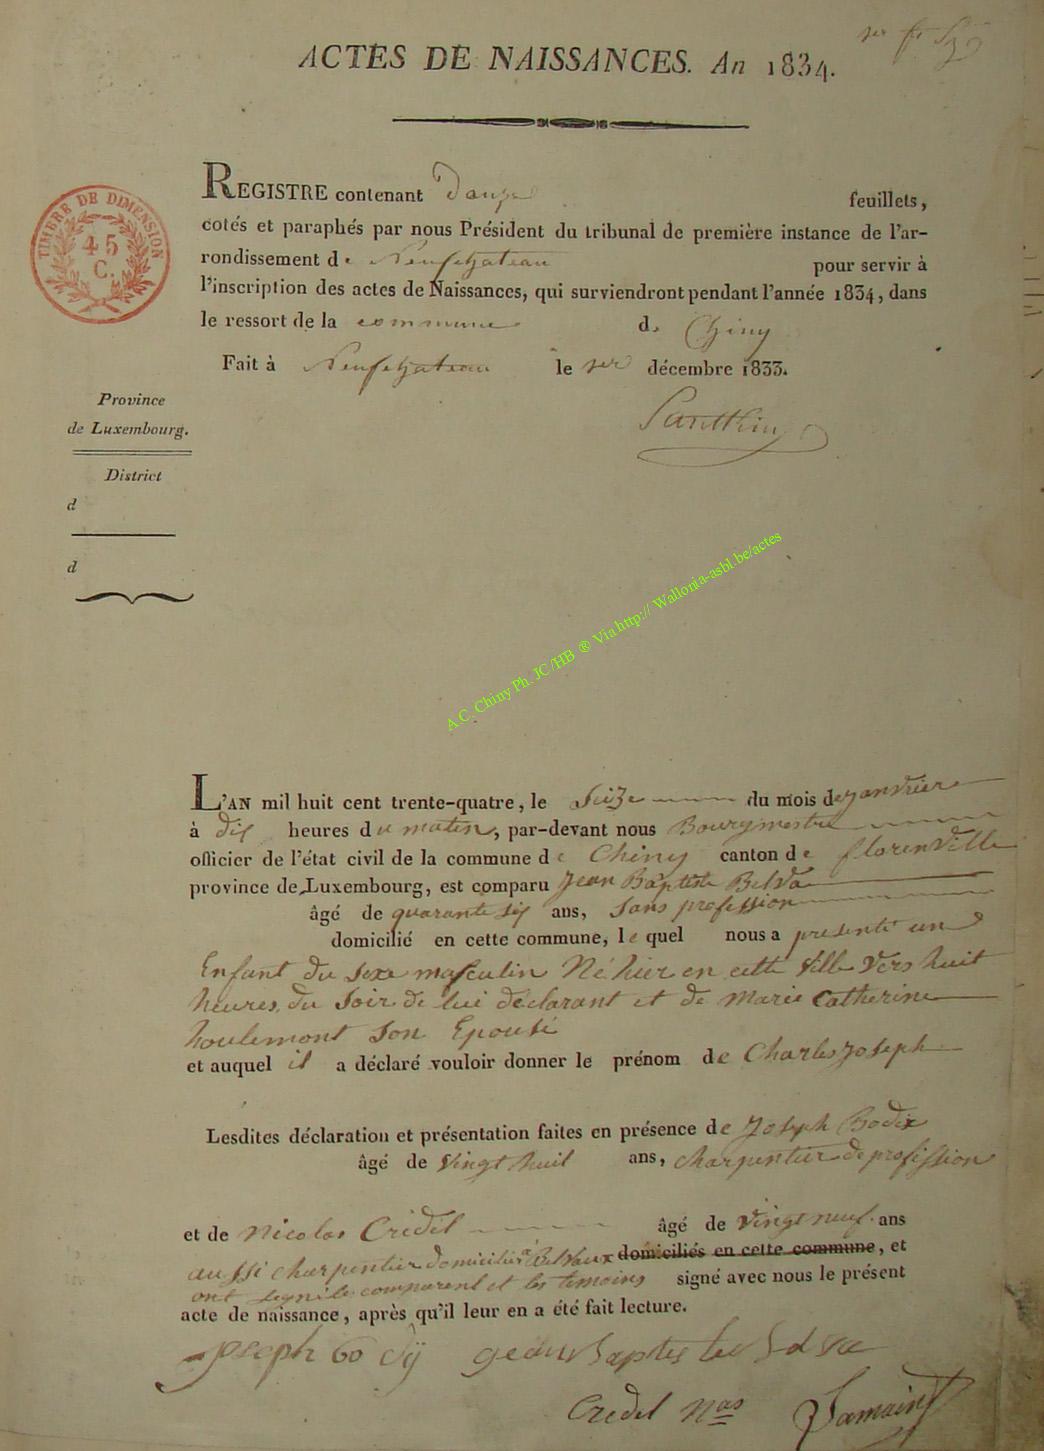 1er ft
ACTES DE NAISSANCES. An 1834.
TIMBRE DE DIMENSION
45
C.
REGISTRE contenant Douze feuillets,
cotés et paraphés par nous Président du tribunal de première instance de l'ar-
rondissement de Neufchateau pour servir à
l'inscription des actes de Naissances, qui surviendront pendant l'année 1834, dans
le ressort de la commune de Chiny
Fait à Neufchateau le 1er décembre 1833.
Province
de Luxembourg.
District
d
d
A.C. Chiny Ph. JC/HB ® Via http:// Wallonia-asbl.be/actes
L'AN mil huit cent trente-quatre, le Seize du mois de janvier
à dix heures du matin, par-devant nous Bourgmestre
officier de l'état civil de la commune de Chiny canton de florenville
province de Luxembourg, est comparu Jean Baptiste Belva
âgé de quarante six ans, Sans profession
domicilié en cette commune, le quel nous a presenté un
Enfant du Sexe masculin Né hier en cette Ville Vers huit
heures du Soir de lui déclarant et de Marie Catherine
houlemont Son Epouse
et auquel il a déclaré vouloir donner le prénom de Charles Joseph
Lesdites déclaration et présentation faites en présence de Joseph Bodix
âgé de Vingt huit ans, charpentier de profession
et de Nicolas Credel âgé de Vingt neuf ans
aussi charpentier domiciliés a Belvaux domiciliés en cette commune, et
ont signé le comparent et les temoins signé avec nous le présent
acte de naissance, après qu'il leur en a été fait lecture.
Joseph
Credel Nas